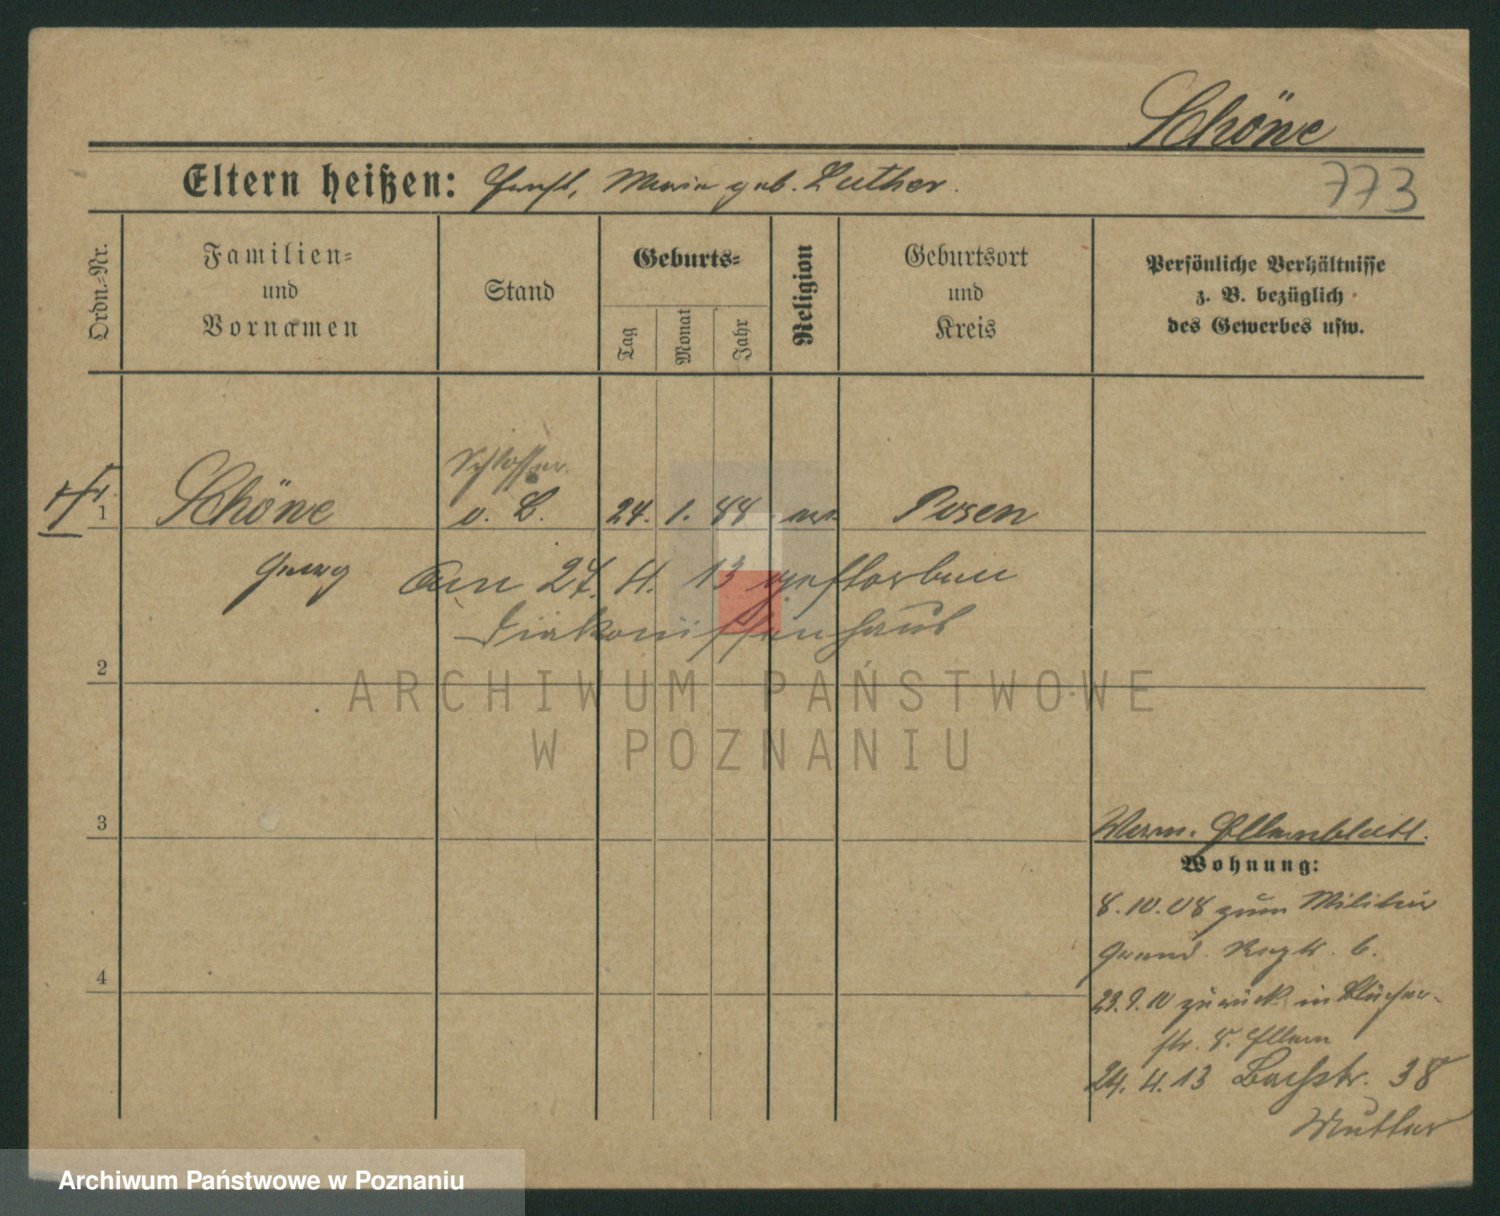 Schöne
Eltern heißen: Ernst, Maria geb. Luther.
773
Ordn.-Nr.
Familien-
und
Vornamen
Stand
Geburts-
Tag
Monat
Jahr
Religion
Geburtsort
und
Kreis
Persönliche Verhältnisse
z. B. bezüglich
des Gewerbes usw.
Schlosser
1 Schöne v. L. 24. 1. 88 ev. Posen
Georg
Am 27. 4. 13 gestorben
Diakonissenhaus
2
3
4
Verm. Elternblatt.
Wohnung:
8.10.08 zum Militär
Grend. Regt. 6.
23.9.10 zurück in Blücher-
str. 8. Eltern
24. 4. 13 Bachstr. 38
Mutter
ARCHIWUM PAŃSTWOWE
W POZNANIU
Archiwum Państwowe w Poznaniu